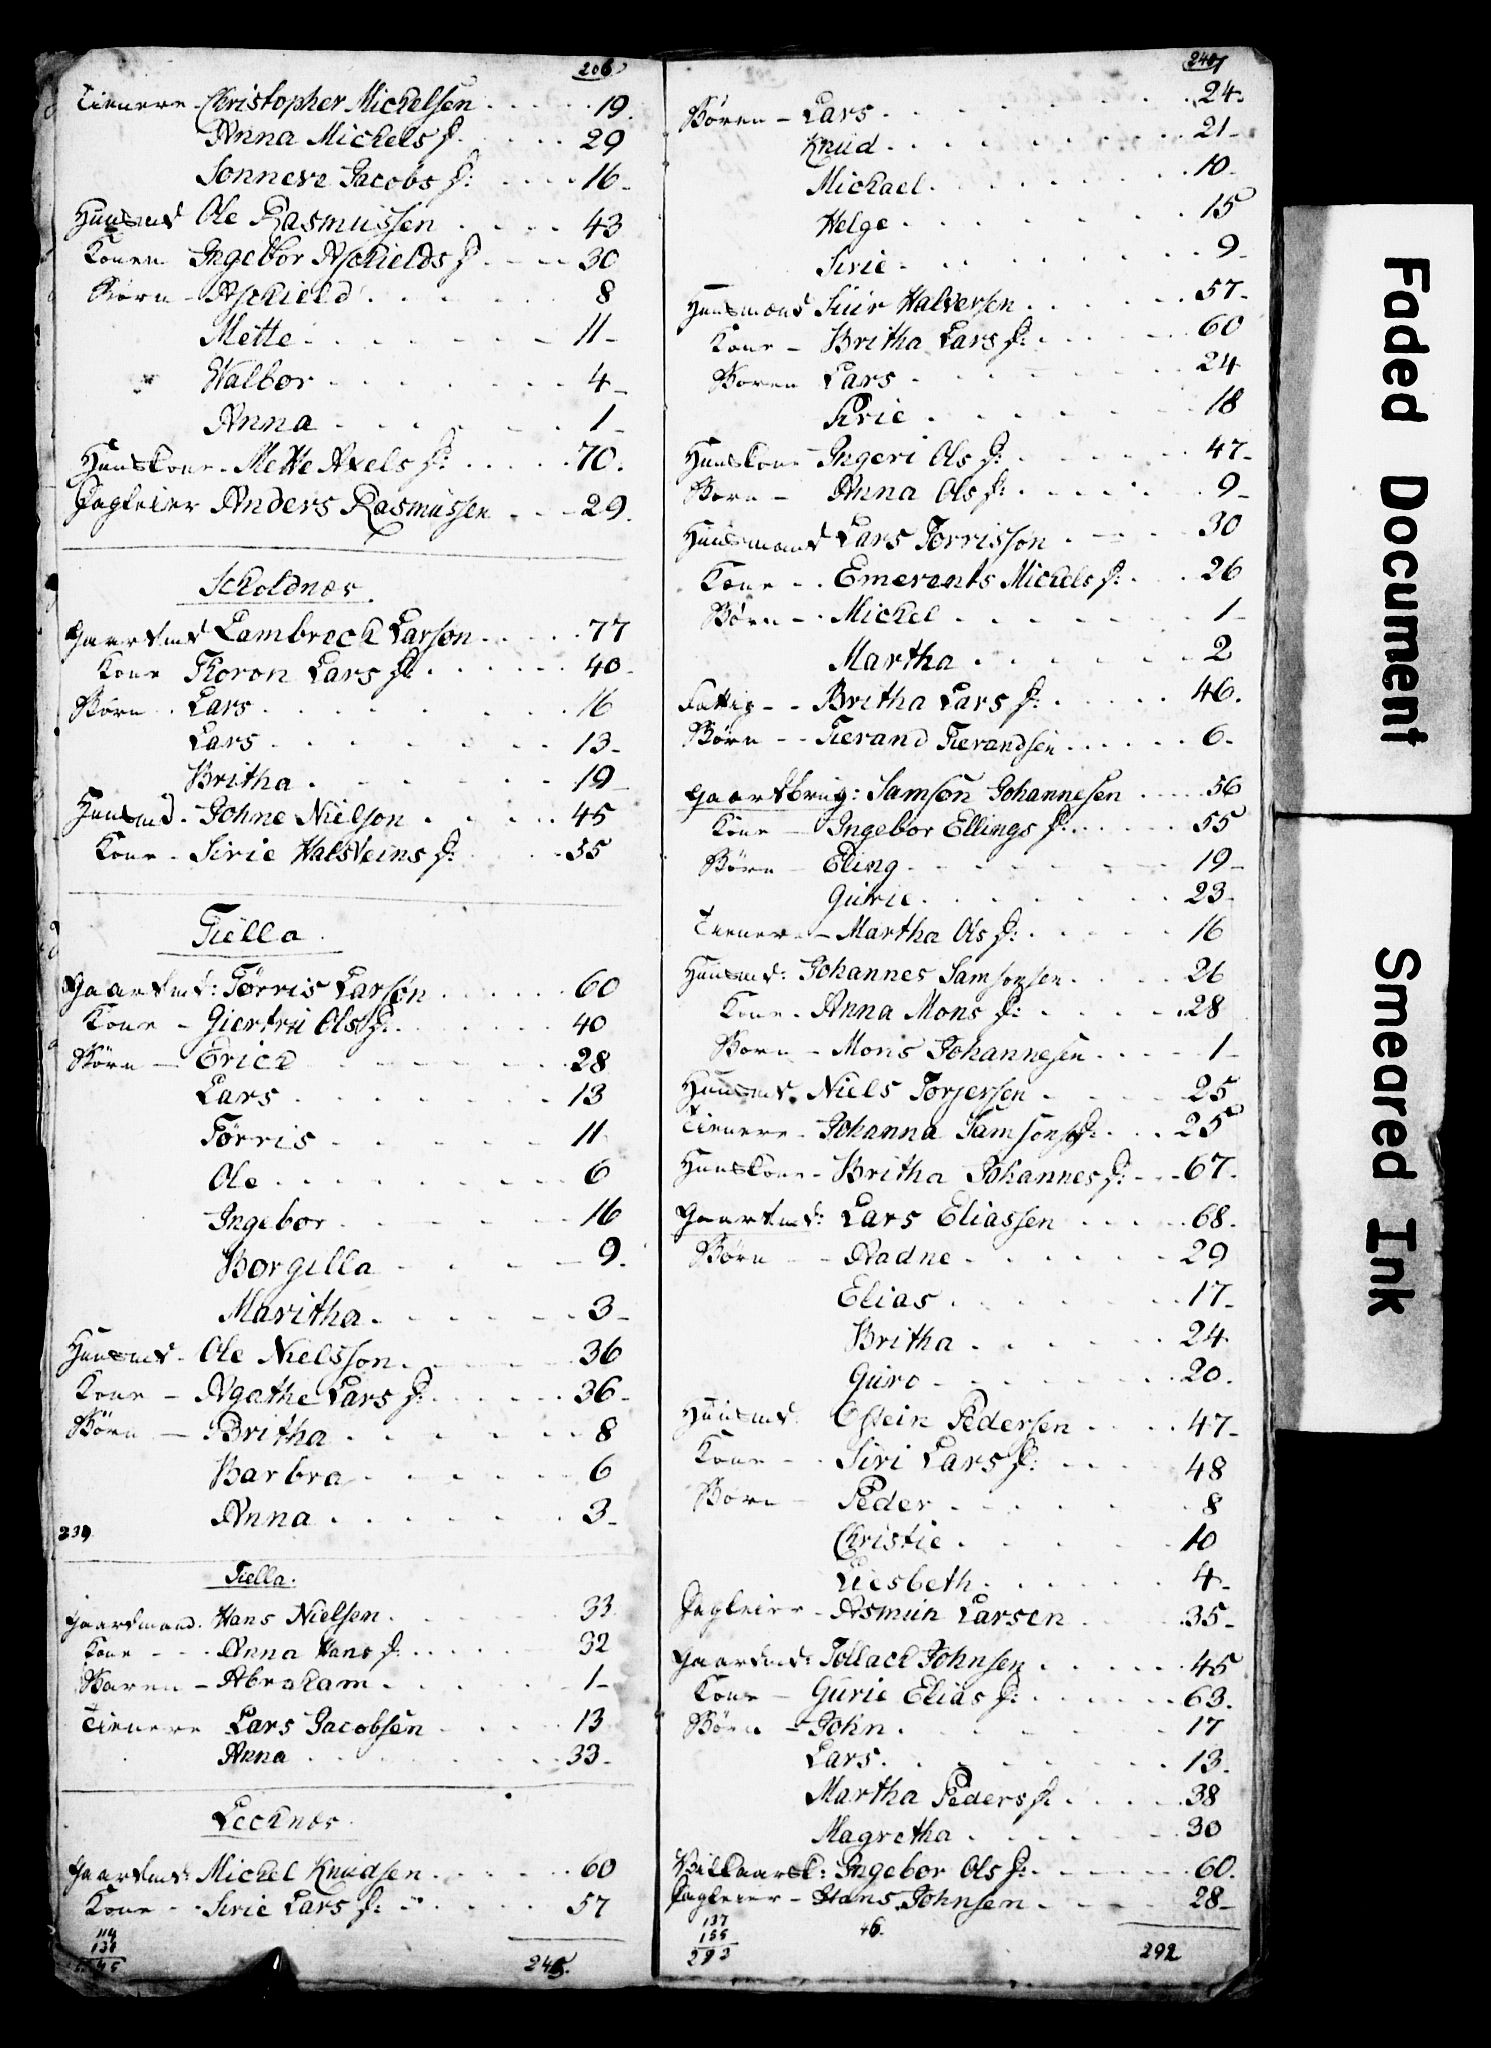 206
Tienere - Christopher Mickelsen 19.
Anna Mickels D. 29
Sønneve Jacobs D: 16-
Huusmd Ole Rasmussen 43
Konen Ingebor Aschields D 30
Børn - Aschield 8
Mette 11-
Walbor 4-
Anna 1-
Huuskone - Mette Axels D: 70.
Jægleier Anders Rasmussen 29.
Scholdnæs.
Gaardmd Lambrech Larsøn 77
Kone Thoron Lars D. 40-
Børn - Lars 16
Lars 13-
Britha 19-
Huusmd. Johne Nielsøn 45
Kone - Sirie Halsteins D: 55
Tiella.
Gaardmd: Tørris Larsøn 60
Kone - Giertru Ols D: 40
Børn - Erich 28
Lars 13
Tørris 11
Ole 6
Ingebor 16
Borgilla 9.
Maritha 3-
Huusmd - Ole Nielssøn 36
Kone - Agathe Lars D: 36-
Børn - Britha 8
Barbra 6
Anna 3-
239
Tiella.
Gaardmand. Hans Nielsen 33
Kone - Anna Hans D. 32
Barnen - Abraham 1-
Tienere Lars Jacobsen 13
Anna 33-
Lecknæs.
Gaardmd: Mickel Knudsen 60
Kone - Sirie Lars D: 57
114
131
245
245.
Børen - Lars 24.
Knud 21-
Mickael 10-
Helge 15
Sirie 9-
Huusmand Siur Halversen 57-
Kone - Britha Lars D: 60
Børen Lars 24
Sirie 18
Huuskone - Ingeri Ols D: 47-
Barn - Anna Ols D: 9-
Huusmand Lars Torrissøn 30
Kone - Emerents Mickels D: 26
Børn - Mickel 1-
Martha 2
Fattig - Britha Lars D: 46.
Børn - Tierand Tierandsen 6-
Gaardbrug: Samson Johannesen 56
Kone - Ingebor Ellings D: 55
Børn - Eling 19-
Gurie 23-
Tienere - Martha Ols D: 16
Huusmd: Johannes Samsonsen 26
Kone - Anna Mons D: 28
Barn - Mons Johannesen 1-
Huusmd. Niels Torjersen 25
Tienere - Johanna Samsons D: 25
Huuskone - Britha Johannes D: 67.
Gaardmd: Lars Eliassen 68.
Børn - Aadne 29
Elias 17-
Britha 24
Guro 20-
Huusmd. Østein Pedersen 47-
Kone - Siri Lars D: 48
Børn - Peder 8
Christie 10
Liesbeth 4-
Jægleier - Asmun Larsen 35-
Gaardmd: Tollack Johnsen 45
Kone - Gurie Elias D: 63.
Børn - John 17
Lars 13.
Martha Peders D. 38
Magretha 30
Vilkaarsk: Ingebor Ols D: 60.
Jægleier - Hans Johnsen 28-
137
155
292
46.
292
Faded Document
Smeared Ink